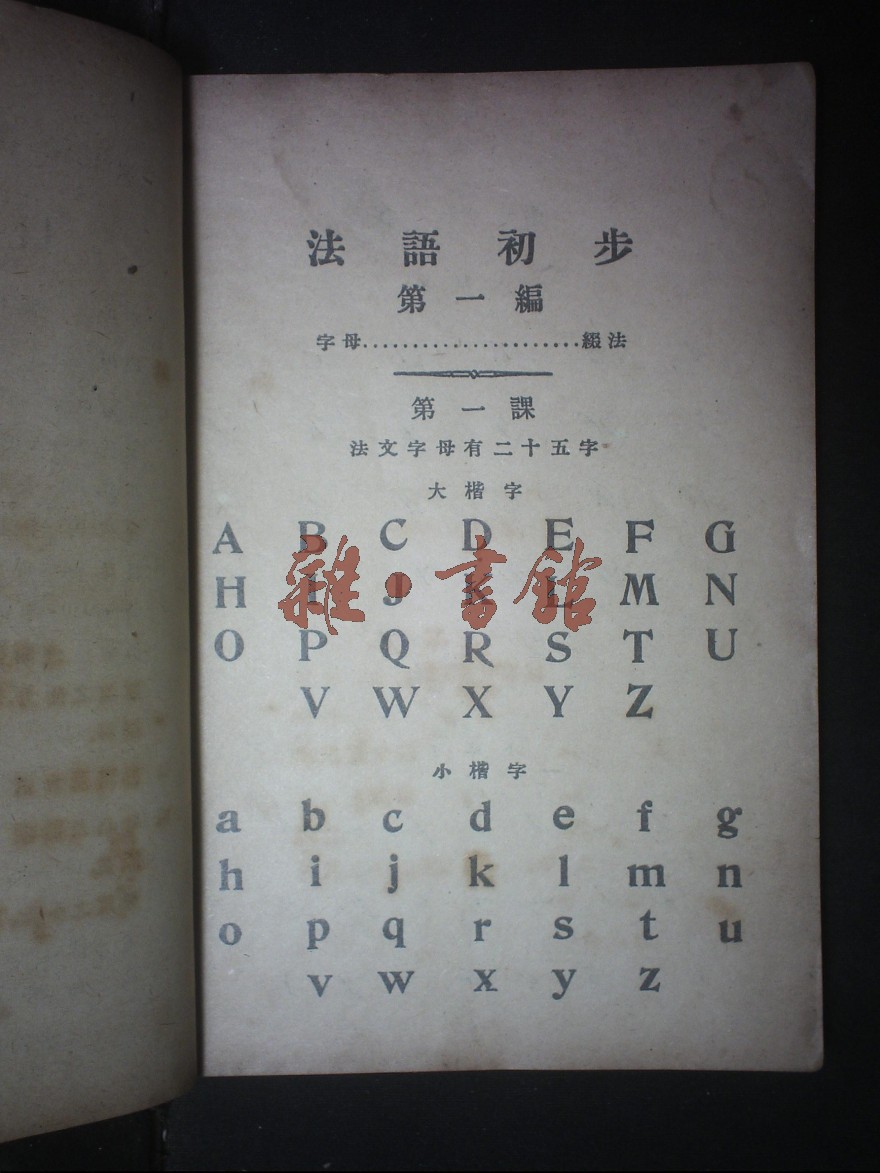 法語初步
第一編
字母......................綴法
第一課
法文字母有二十五字
大楷字
A B C D E F G
H I J K L M N
O P Q R S T U
V W X Y Z
雜·書館
小楷字
a b c d e f g
h i j k l m n
o p q r s t u
v w x y z